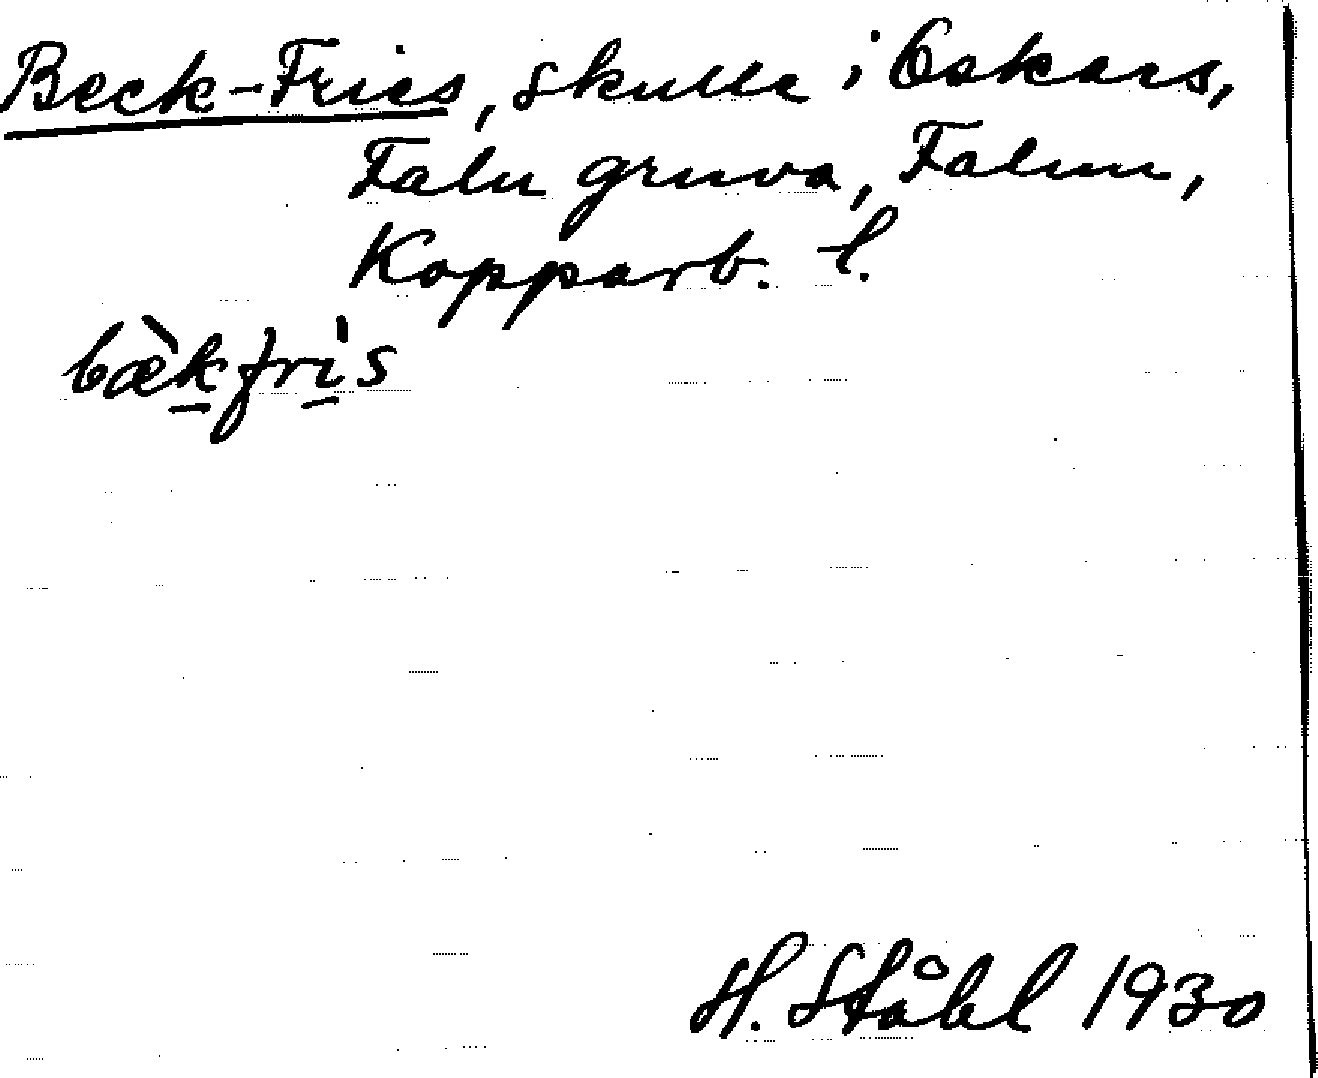 Beck-Fries, skulla i Oskars,
Falu gruva, Falun,
Kopparb. l.
bæ̀k̲fri̲̍s
H. Ståhl 1930